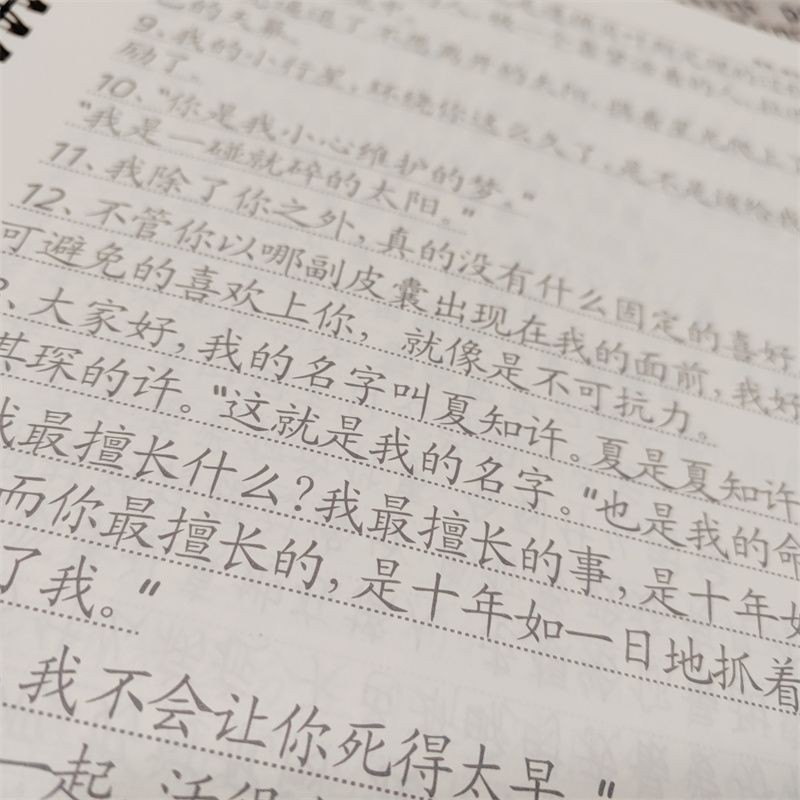 己的天幕。
9、我的小行星,环绕你这么久了,是不是该给我
励了。
10、"你是我小心维护的梦。"
"我是一碰就碎的太阳。"
11、我除了你之外,真的没有什么固定的喜好。
12、不管你以哪副皮囊出现在我的面前,我好
可避免的喜欢上你,就像是不可抗力。
3、大家好,我的名字叫夏知许。夏是夏知许
其琛的许。"这就是我的名字。"也是我的命
我最擅长什么?我最擅长的事,是十年如
而你最擅长的,是十年如一日地抓着
了我。"
、我不会让你死得太早。"
一起,活得